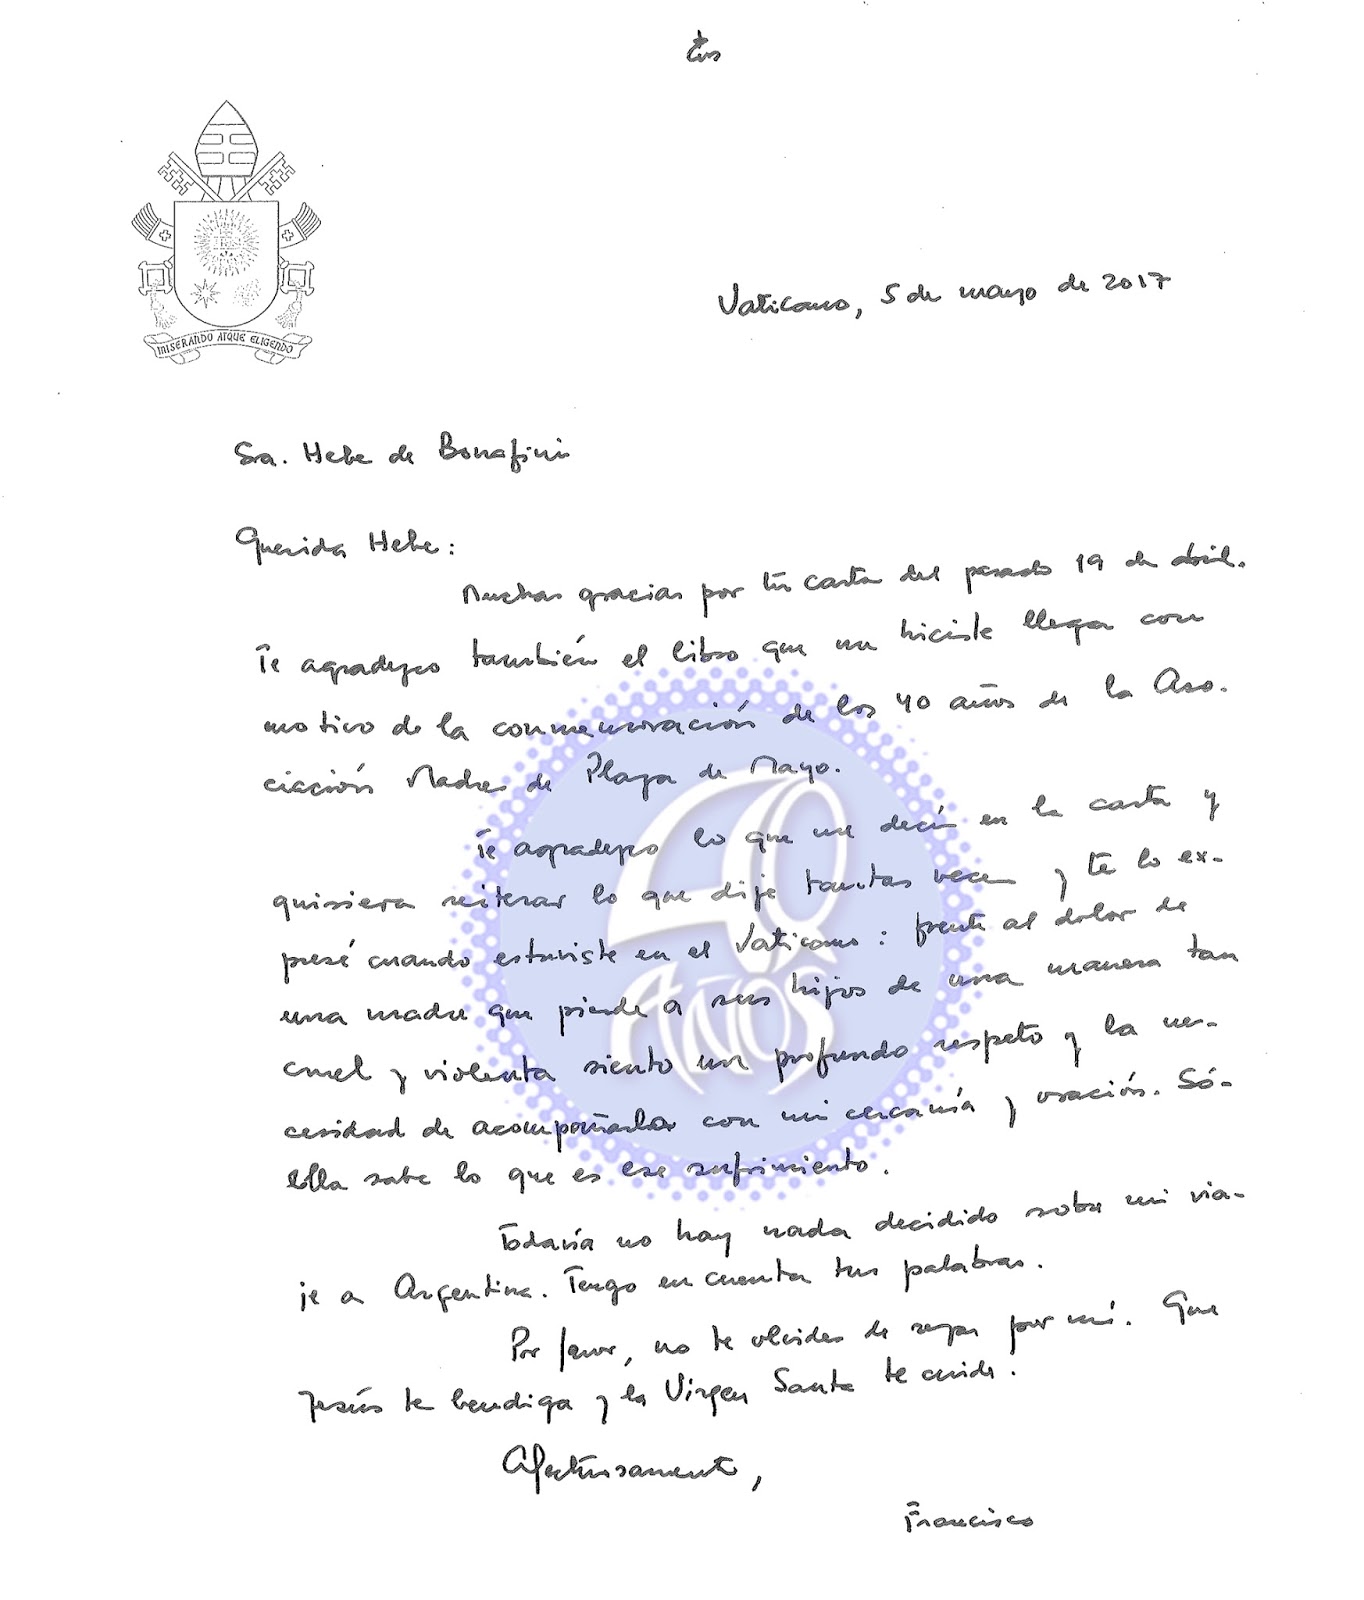 MISERANDO ATQUE ELIGENDO
Vaticano, 5 de mayo de 2017
Sra. Hebe de Bonafini
Querida Hebe:
Muchas gracias por tu carta del pasado 19 de abril.
Te agradezco también el libro que me hiciste llegar con
motivo de la conmemoración de los 40 años de la Aso-
ciación Madres de Plaza de Mayo.
Te agradezco lo que me decís en la carta y
quisiera reiterar lo que dije tantas veces y te lo ex-
presé cuando estuviste en el Vaticano: frente al dolor de
una madre que pierde a sus hijos de una manera tan
cruel y violenta siento un profundo respeto y la ne-
cesidad de acompañarla con mi cercanía y oración. Só-
lo ella sabe lo que es ese sufrimiento.
Todavía no hay nada decidido sobre mi via-
je a Argentina. Tengo en cuenta tus palabras.
Por favor, no te olvides de rezar por mí. Que
Jesús te bendiga y la Virgen Santa te cuide.
Afectuosamente,
Francisco
40
AÑOS